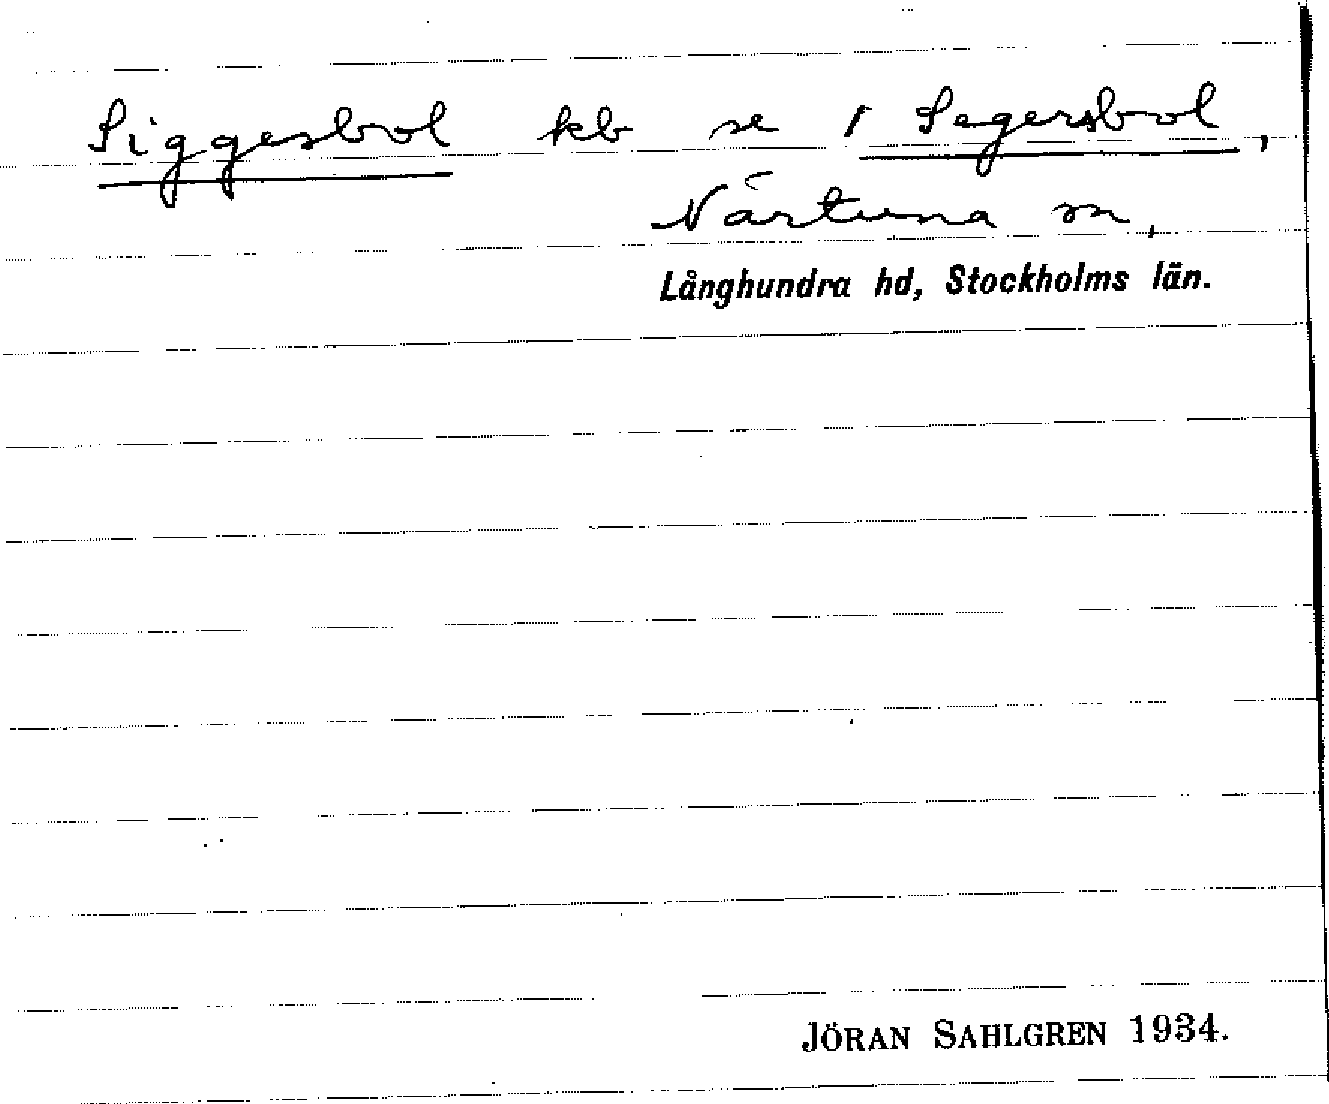 Siggesbol kb se 1 Segersbol,
Närtuna sn,
Långhundra hd, Stockholms län.
JÖRAN SAHLGREN 1934.